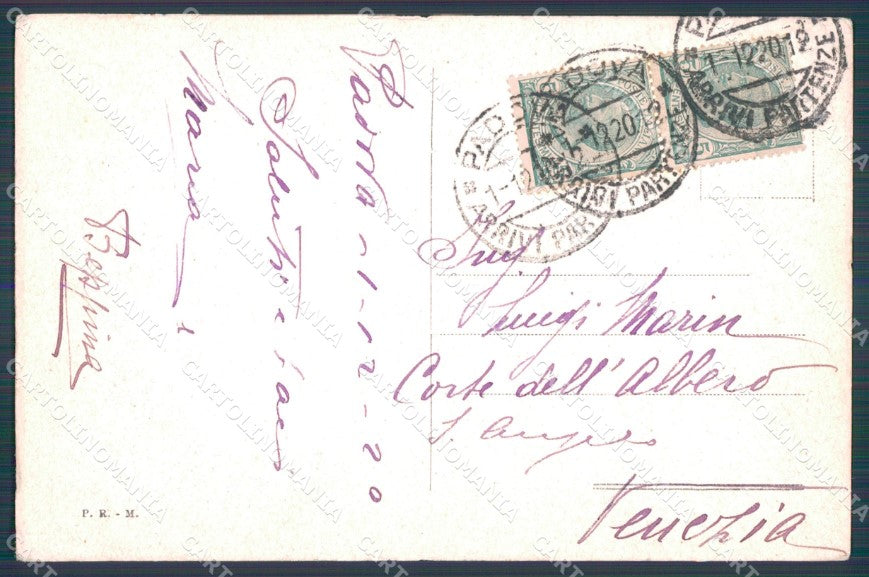 Padova 1-12-20
Saluti e baci
Maria
Beppina
P. R. - M.
PADOVA
1-12
ARRIVI PAR
1-12 20 18
ARRIVI PARTENZE
1-12 20 19
ARRIVI PARTENZE
Sig
Luigi Marin
Corte dell' Albero
S. Angelo
Venezia
CARTOLINOMANIA